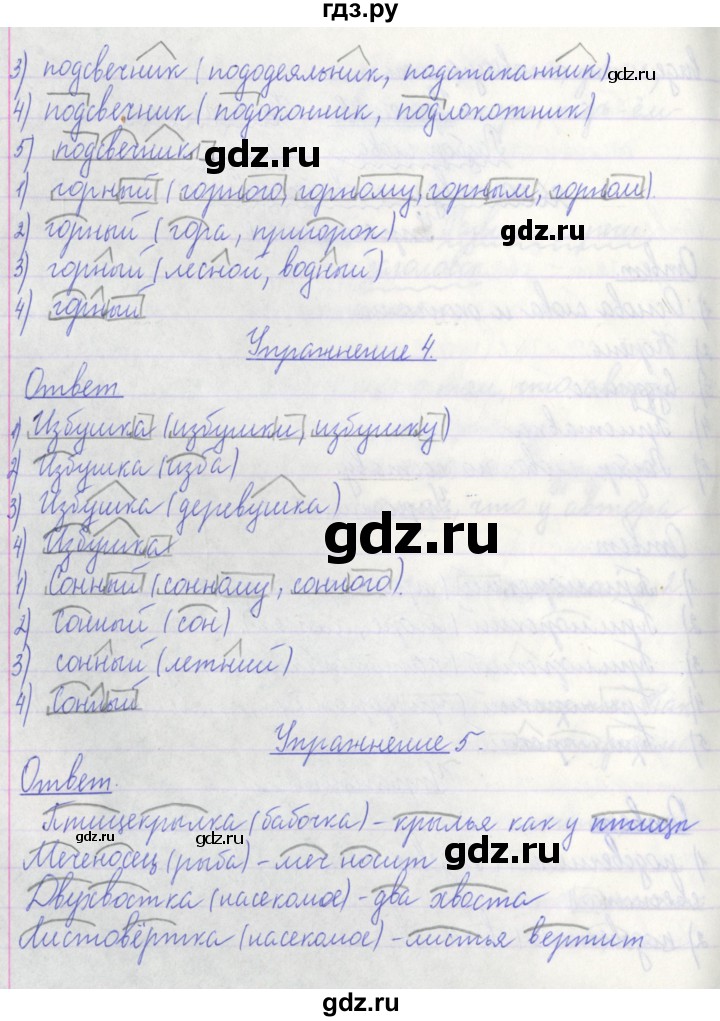 гдз.ру
3) подсвечник (пододеяльник, подстаканник)
4) подсвечник (подоконник, подлокотник)
5) подсвечник
gdz.ru
1) горный (горного, горному, горным, горном).
gdz.ru
2) горный (гора, пригорок)
3) горный (лесной, водный)
4) горный
Упражнение 4.
Ответ
1) Избушка (избушки, избушку)
2) Избушка (изба)
3) Избушка (деревушка)
gdz.ru
4) Избушка
1) Сонный (сонному, сонного).
2) Сонный (сон)
3) сонный (летний)
4) Сонный
Упражнение 5.
Ответ.
Птицекрылка (бабочка) - крылья как у птицы
gdz.ru
gdz.ru
Меченосец (рыба) - меч носит
gdz.ru
Двухвостка (насекомое) - два хвоста
Листовёртка (насекомое) - листья вертит
gdz.ru